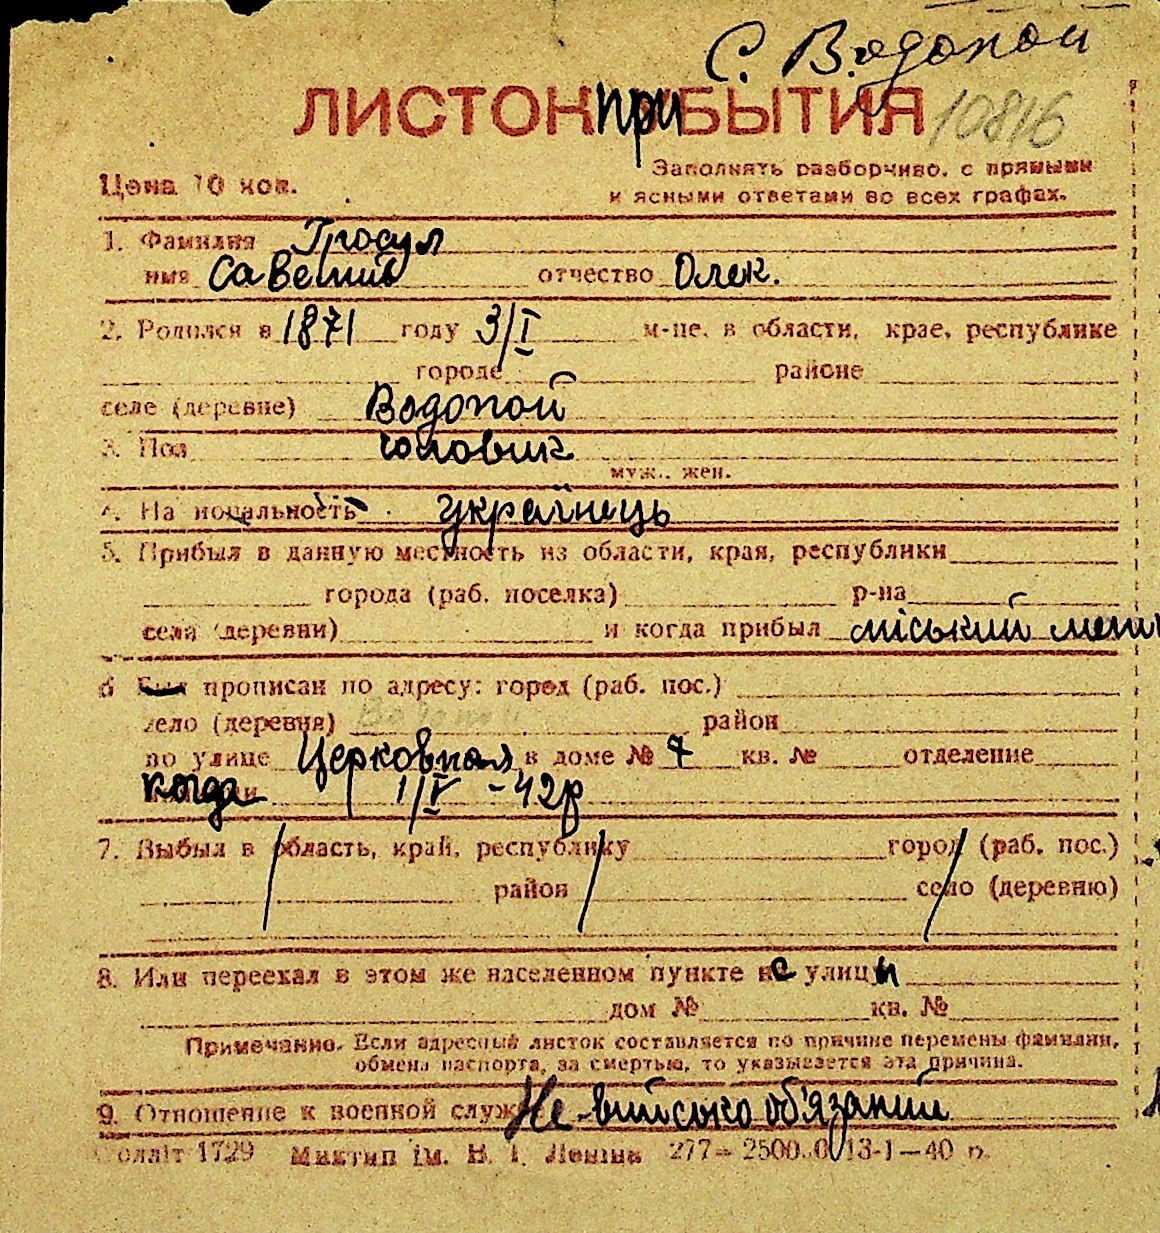 С. Водопой
ЛИСТОК приБЫТИЯ 10816
Цена 10 коп.
Заполнять разборчиво, с прямыми
и ясными ответами во всех графах.
1. Фамилия Гросул
имя Савелий отчество Олек.
2. Родился в 1871 году 3/I м-це, в области, крае, республике
городе районе
селе (деревне) Водопой
3. Пол чоловик
муж., жен.
4. Национальность українець
5. Прибыл в данную местность из области, края, республики
города (раб. поселка) р-на
села (деревни) и когда прибыл міський
6 Был прописан по адресу: город (раб. пос.)
село (деревня) Водопой район
по улице Церковная в доме № 7 кв. № отделение
когда 1/V -42р
7. Выбыл в область, край, республику город (раб. пос.)
район село (деревню)
8. Или переехал в этом же населенном пункте с улицы
дом № кв. №
Примечание. Если адресный листок составляется по причине перемены фамилии,
обмена паспорта, за смертью, то указывается эта причина.
9. Отношение к военной службе Не-військо обʼязаний
1729 ім. В. І. Леніна 277—2500.0 13-1—40 р.